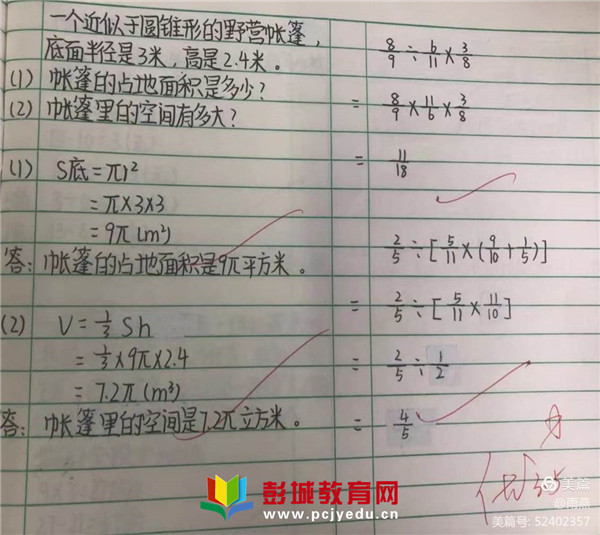 一个近似于圆锥形的野营帐篷，
底面半径是3米，高是2.4米。
(1) 帐篷的占地面积是多少？
(2) 帐篷里的空间有多大？
(1) S底=πr²
=π×3×3
=9π(m²)
答：帐篷的占地面积是9π平方米。
(2) V=1/3Sh
=1/3×9π×2.4
=7.2π(m³)
答：帐篷里的空间是7.2π立方米。
8/9÷6/11×3/8
=8/9×11/6×3/8
=11/18
2/5÷[5/11×(9/10+1/5)]
=2/5÷[5/11×11/10]
=2/5÷1/2
=4/5
彭城教育网
www.pcjyedu.cn
美篇
@雨燕
美篇号: 52402357